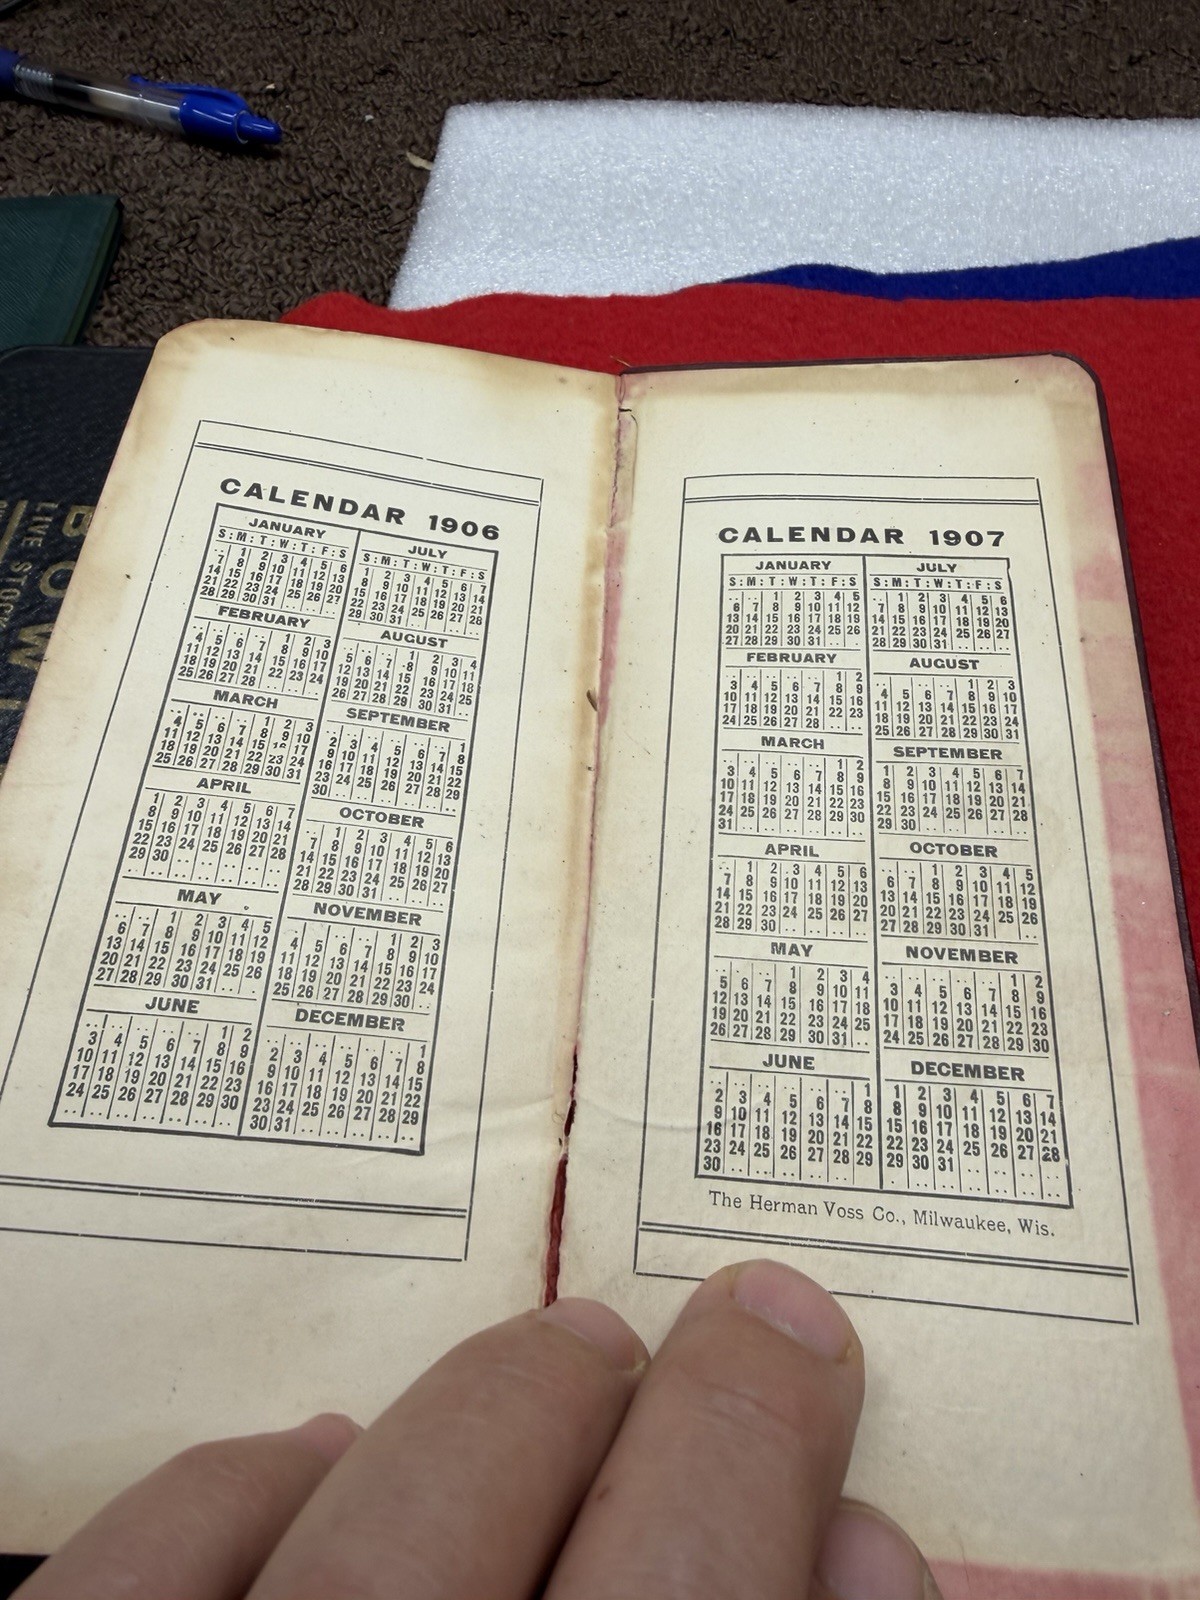 LIVE STOCK
CALENDAR 1906
JANUARY
S : M : T : W : T : F : S
1 2 3 4 5 6
7 8 9 10 11 12 13
14 15 16 17 18 19 20
21 22 23 24 25 26 27
28 29 30 31
FEBRUARY
1 2 3
4 5 6 7 8 9 10
11 12 13 14 15 16 17
18 19 20 21 22 23 24
25 26 27 28
MARCH
1 2 3
4 5 6 7 8 9 10
11 12 13 14 15 16 17
18 19 20 21 22 23 24
25 26 27 28 29 30 31
APRIL
1 2 3 4 5 6 7
8 9 10 11 12 13 14
15 16 17 18 19 20 21
22 23 24 25 26 27 28
29 30
MAY
1 2 3 4 5
6 7 8 9 10 11 12
13 14 15 16 17 18 19
20 21 22 23 24 25 26
27 28 29 30 31
JUNE
1 2
3 4 5 6 7 8 9
10 11 12 13 14 15 16
17 18 19 20 21 22 23
24 25 26 27 28 29 30
JULY
S : M : T : W : T : F : S
1 2 3 4 5 6 7
8 9 10 11 12 13 14
15 16 17 18 19 20 21
22 23 24 25 26 27 28
29 30 31
AUGUST
1 2 3 4
5 6 7 8 9 10 11
12 13 14 15 16 17 18
19 20 21 22 23 24 25
26 27 28 29 30 31
SEPTEMBER
1
2 3 4 5 6 7 8
9 10 11 12 13 14 15
16 17 18 19 20 21 22
23 24 25 26 27 28 29
30
OCTOBER
1 2 3 4 5 6
7 8 9 10 11 12 13
14 15 16 17 18 19 20
21 22 23 24 25 26 27
28 29 30 31
NOVEMBER
1 2 3
4 5 6 7 8 9 10
11 12 13 14 15 16 17
18 19 20 21 22 23 24
25 26 27 28 29 30
DECEMBER
1
2 3 4 5 6 7 8
9 10 11 12 13 14 15
16 17 18 19 20 21 22
23 24 25 26 27 28 29
30 31
CALENDAR 1907
JANUARY
S : M : T : W : T : F : S
1 2 3 4 5
6 7 8 9 10 11 12
13 14 15 16 17 18 19
20 21 22 23 24 25 26
27 28 29 30 31
FEBRUARY
1 2
3 4 5 6 7 8 9
10 11 12 13 14 15 16
17 18 19 20 21 22 23
24 25 26 27 28
MARCH
1 2
3 4 5 6 7 8 9
10 11 12 13 14 15 16
17 18 19 20 21 22 23
24 25 26 27 28 29 30
31
APRIL
1 2 3 4 5 6
7 8 9 10 11 12 13
14 15 16 17 18 19 20
21 22 23 24 25 26 27
28 29 30
MAY
1 2 3 4
5 6 7 8 9 10 11
12 13 14 15 16 17 18
19 20 21 22 23 24 25
26 27 28 29 30 31
JUNE
1
2 3 4 5 6 7 8
9 10 11 12 13 14 15
16 17 18 19 20 21 22
23 24 25 26 27 28 29
30
JULY
S : M : T : W : T : F : S
1 2 3 4 5 6
7 8 9 10 11 12 13
14 15 16 17 18 19 20
21 22 23 24 25 26 27
28 29 30 31
AUGUST
1 2 3
4 5 6 7 8 9 10
11 12 13 14 15 16 17
18 19 20 21 22 23 24
25 26 27 28 29 30 31
SEPTEMBER
1 2 3 4 5 6 7
8 9 10 11 12 13 14
15 16 17 18 19 20 21
22 23 24 25 26 27 28
29 30
OCTOBER
1 2 3 4 5
6 7 8 9 10 11 12
13 14 15 16 17 18 19
20 21 22 23 24 25 26
27 28 29 30 31
NOVEMBER
1 2
3 4 5 6 7 8 9
10 11 12 13 14 15 16
17 18 19 20 21 22 23
24 25 26 27 28 29 30
DECEMBER
1 2 3 4 5 6 7
8 9 10 11 12 13 14
15 16 17 18 19 20 21
22 23 24 25 26 27 28
29 30 31
The Herman Voss Co., Milwaukee, Wis.